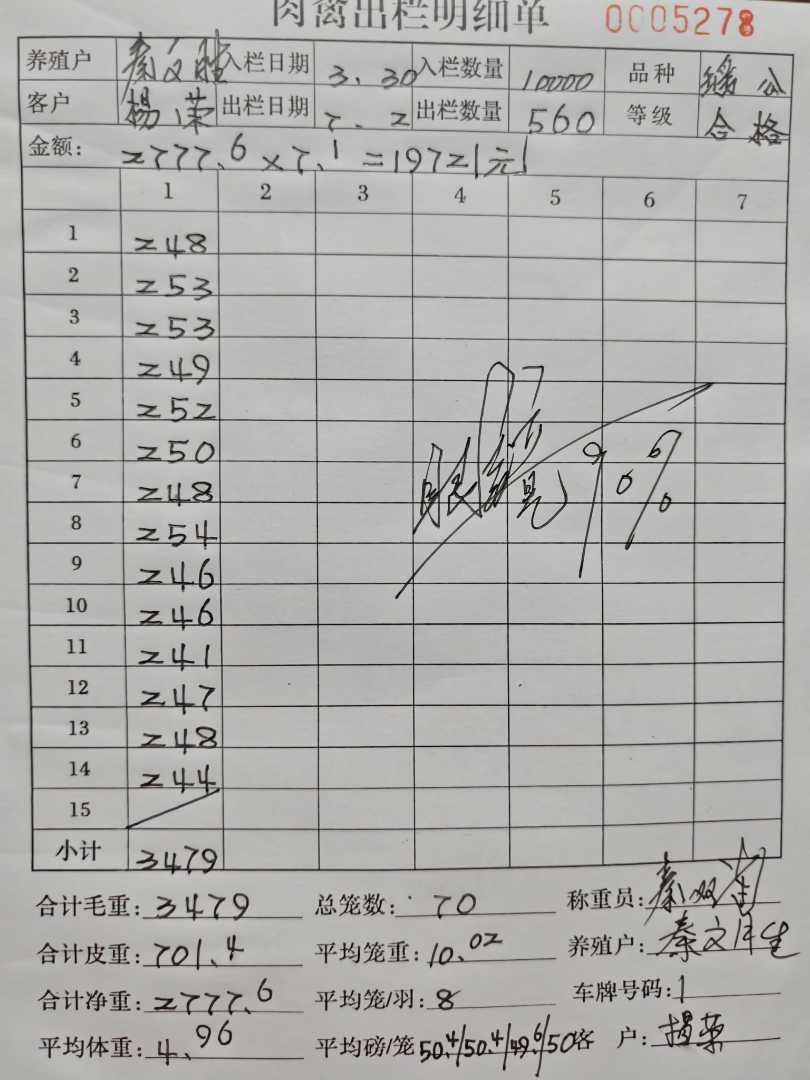 肉禽出栏明细单 0005278
养殖户 秦文胜 入栏日期 3.30 入栏数量 10000 品种
客户 杨荣 出栏日期 7.2 出栏数量 560 等级 合格
金额: 2777.6×7.1=19721元
1 2 3 4 5 6 7
1 248
2 253
3 253
4 249
5 252
6 250
7 248
8 254
9 246
10 246
11 241
12 247
13 248
14 244
15
小计 3479
合计毛重: 3479 总笼数: 70 称重员:
合计皮重: 701.4 平均笼重: 10.02 养殖户: 秦文胜
合计净重: 2777.6 平均笼/羽: 8 车牌号码: 1
平均体重: 4.96 平均磅/笼 50.4/50.4/49.6/50 客户: 杨荣